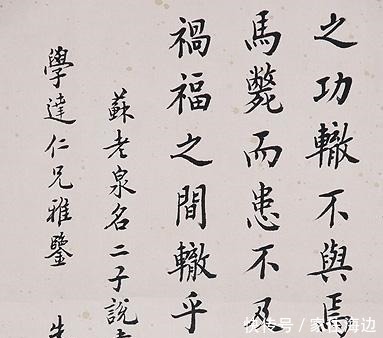 之功轍不與焉
馬斃而患不及
禍福之間轍乎
蘇老泉名二子說
學達仁兄雅鑒
快传号 / 家住海边